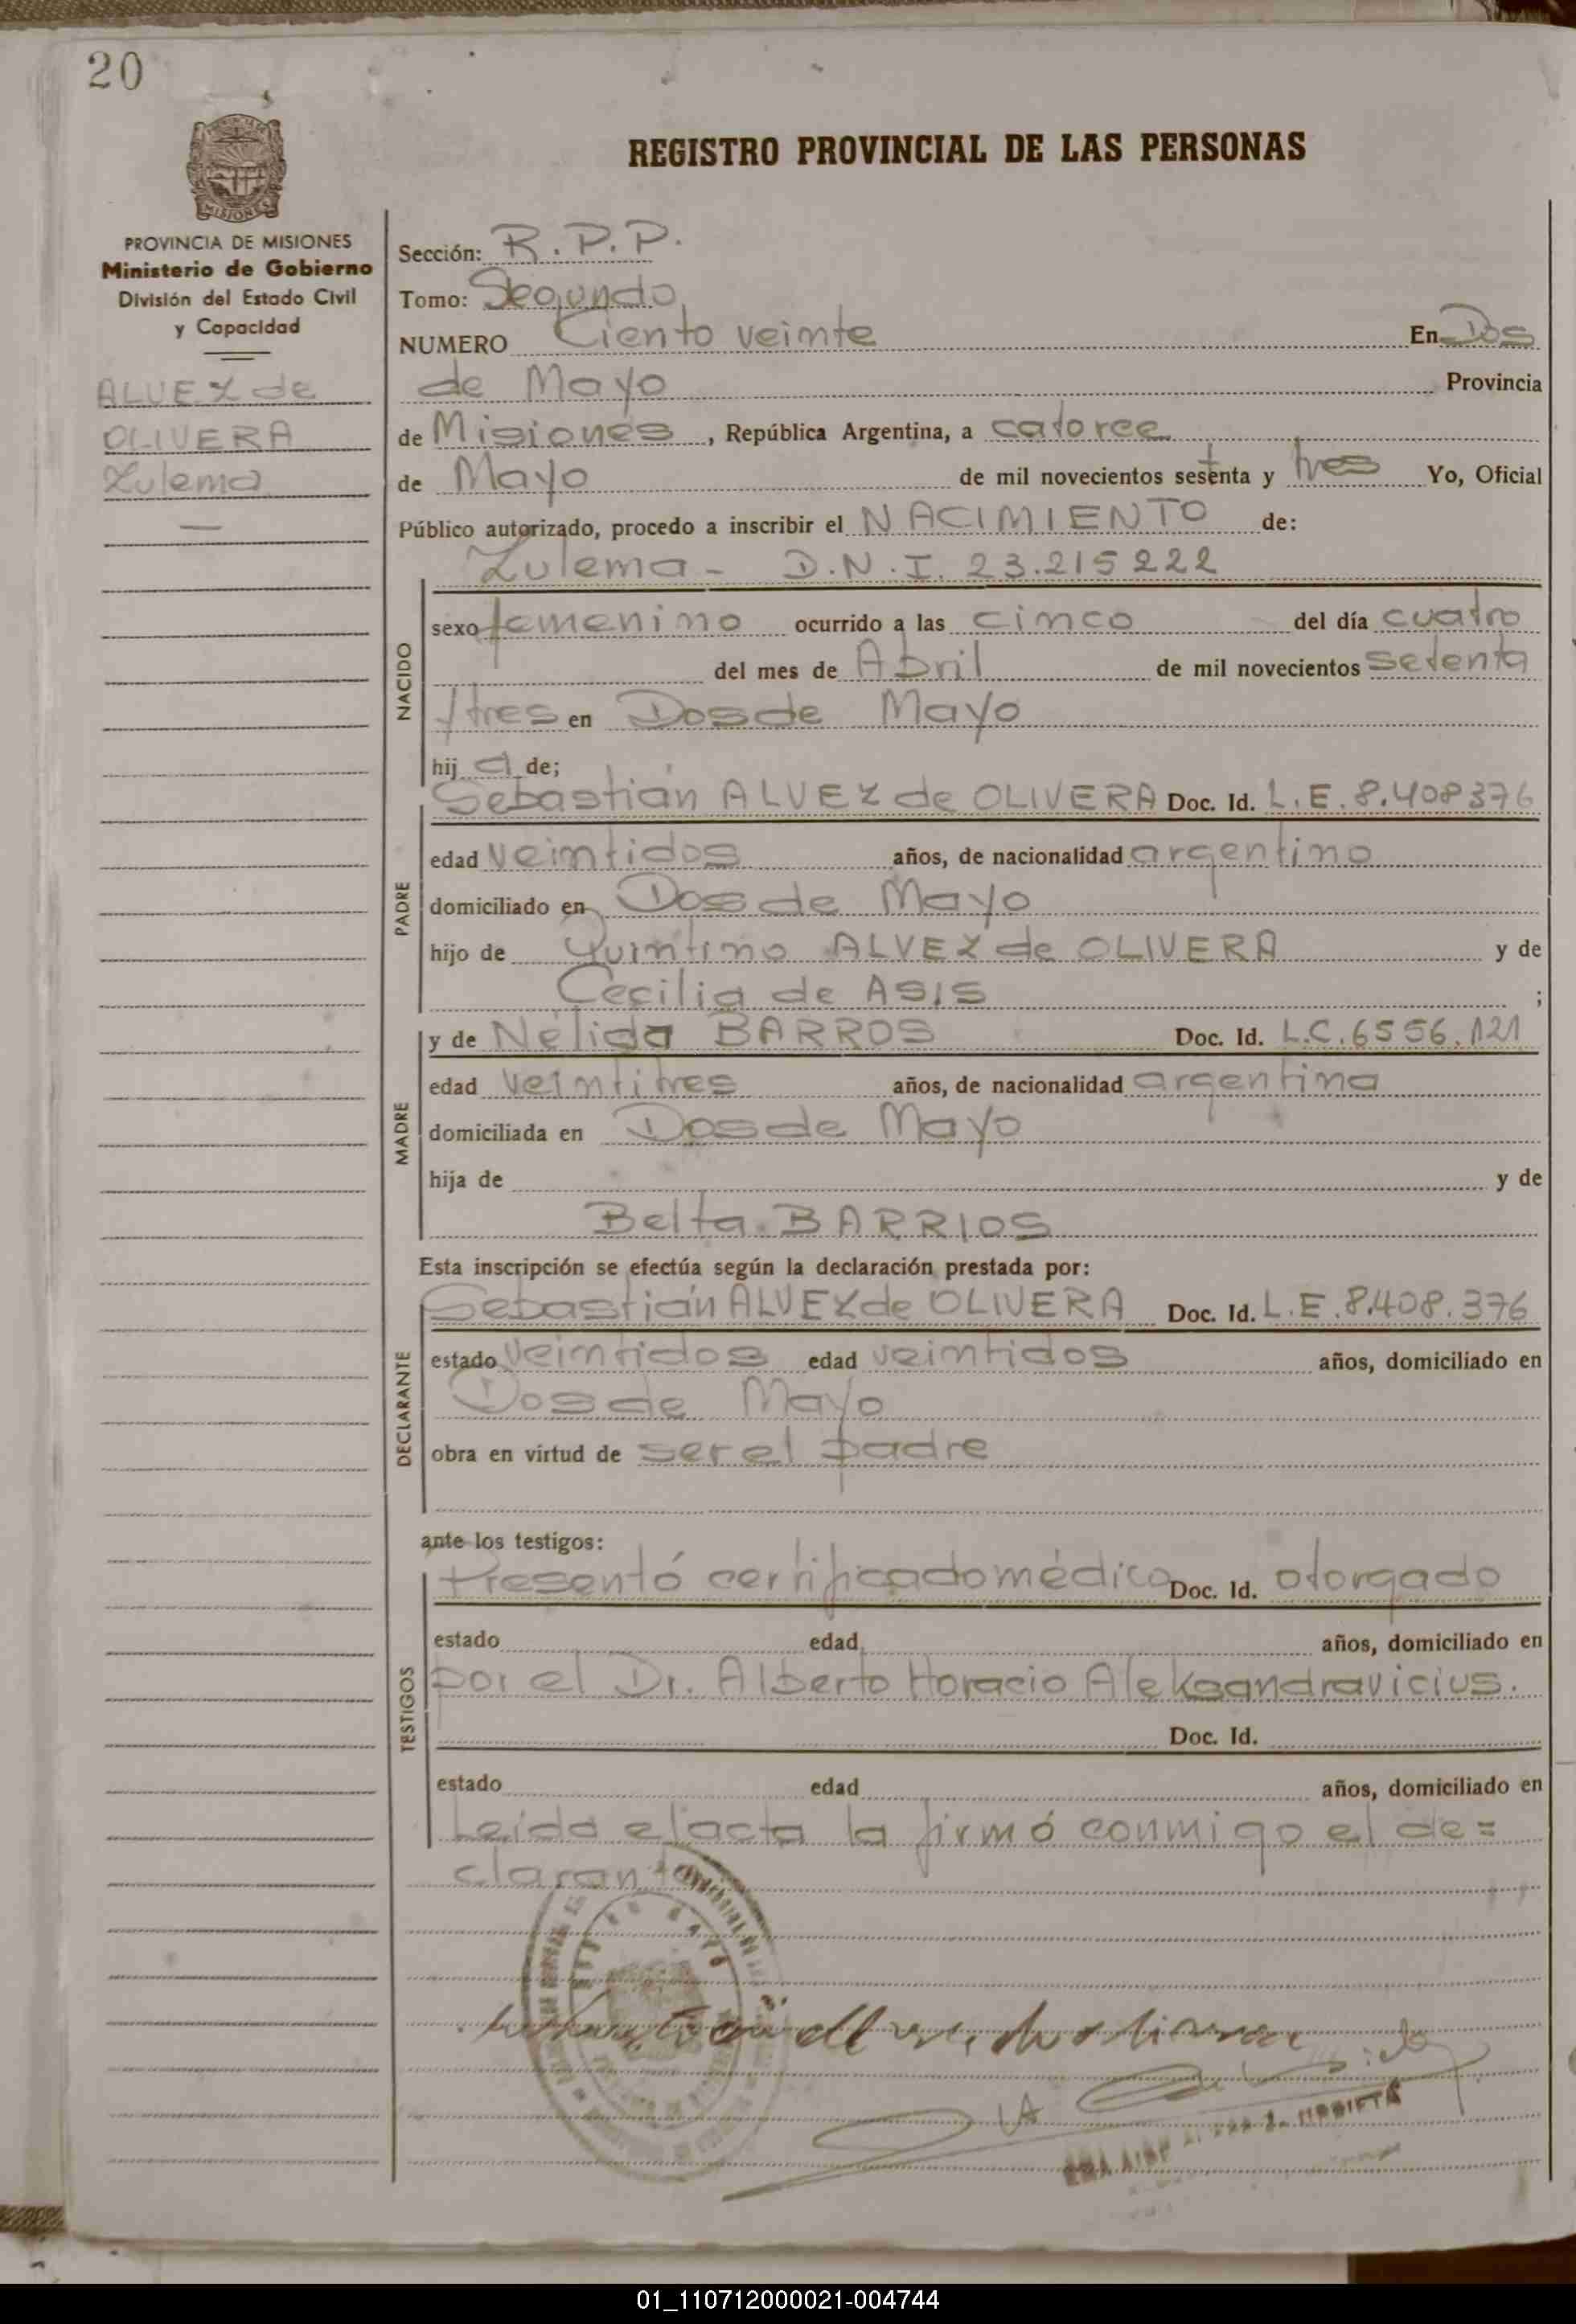 20
PROVINCIA DE MISIONES
Ministerio de Gobierno
División del Estado Civil
y Capacidad
ALVEZ de
OLIVERA
Zulema
REGISTRO PROVINCIAL DE LAS PERSONAS
Sección: R.P.P.
Tomo: Segundo
NUMERO Ciento veinte En Dos
de Mayo Provincia
de Misiones, República Argentina, a catorce
de Mayo de mil novecientos sesenta y tres Yo, Oficial
Público autorizado, procedo a inscribir el NACIMIENTO de:
Zulema - D.N.I. 23.215222
NACIDO
sexo femenino ocurrido a las cinco del día cuatro
del mes de Abril de mil novecientos setenta
ytres en Dos de Mayo
hij a de;
PADRE
Sebastián ALVEZ de OLIVERA Doc. Id. L.E. 8.408376
edad veintidos años, de nacionalidad argentino
domiciliado en Dos de Mayo
hijo de Quintino ALVEZ de OLIVERA y de
Cecilia de ASIS ;
MADRE
y de Nélida BARROS Doc. Id. L.C. 6556.121
edad veintitres años, de nacionalidad argentina
domiciliada en Dos de Mayo
hija de y de
Belta BARRIOS
Esta inscripción se efectúa según la declaración prestada por:
DECLARANTE
Sebastián ALVEZ de OLIVERA Doc. Id. L.E. 8.408.376
estado veintidos edad veintidos años, domiciliado en
Dos de Mayo
obra en virtud de ser el padre
ante los testigos:
TESTIGOS
Presentó certificado médico Doc. Id. otorgado
estado edad años, domiciliado en
por el Dr. Alberto Horacio Aleksandravicius.
Doc. Id.
estado edad años, domiciliado en
Leída el acta la firmó conmigo el de=
clarante
01_110712000021-004744